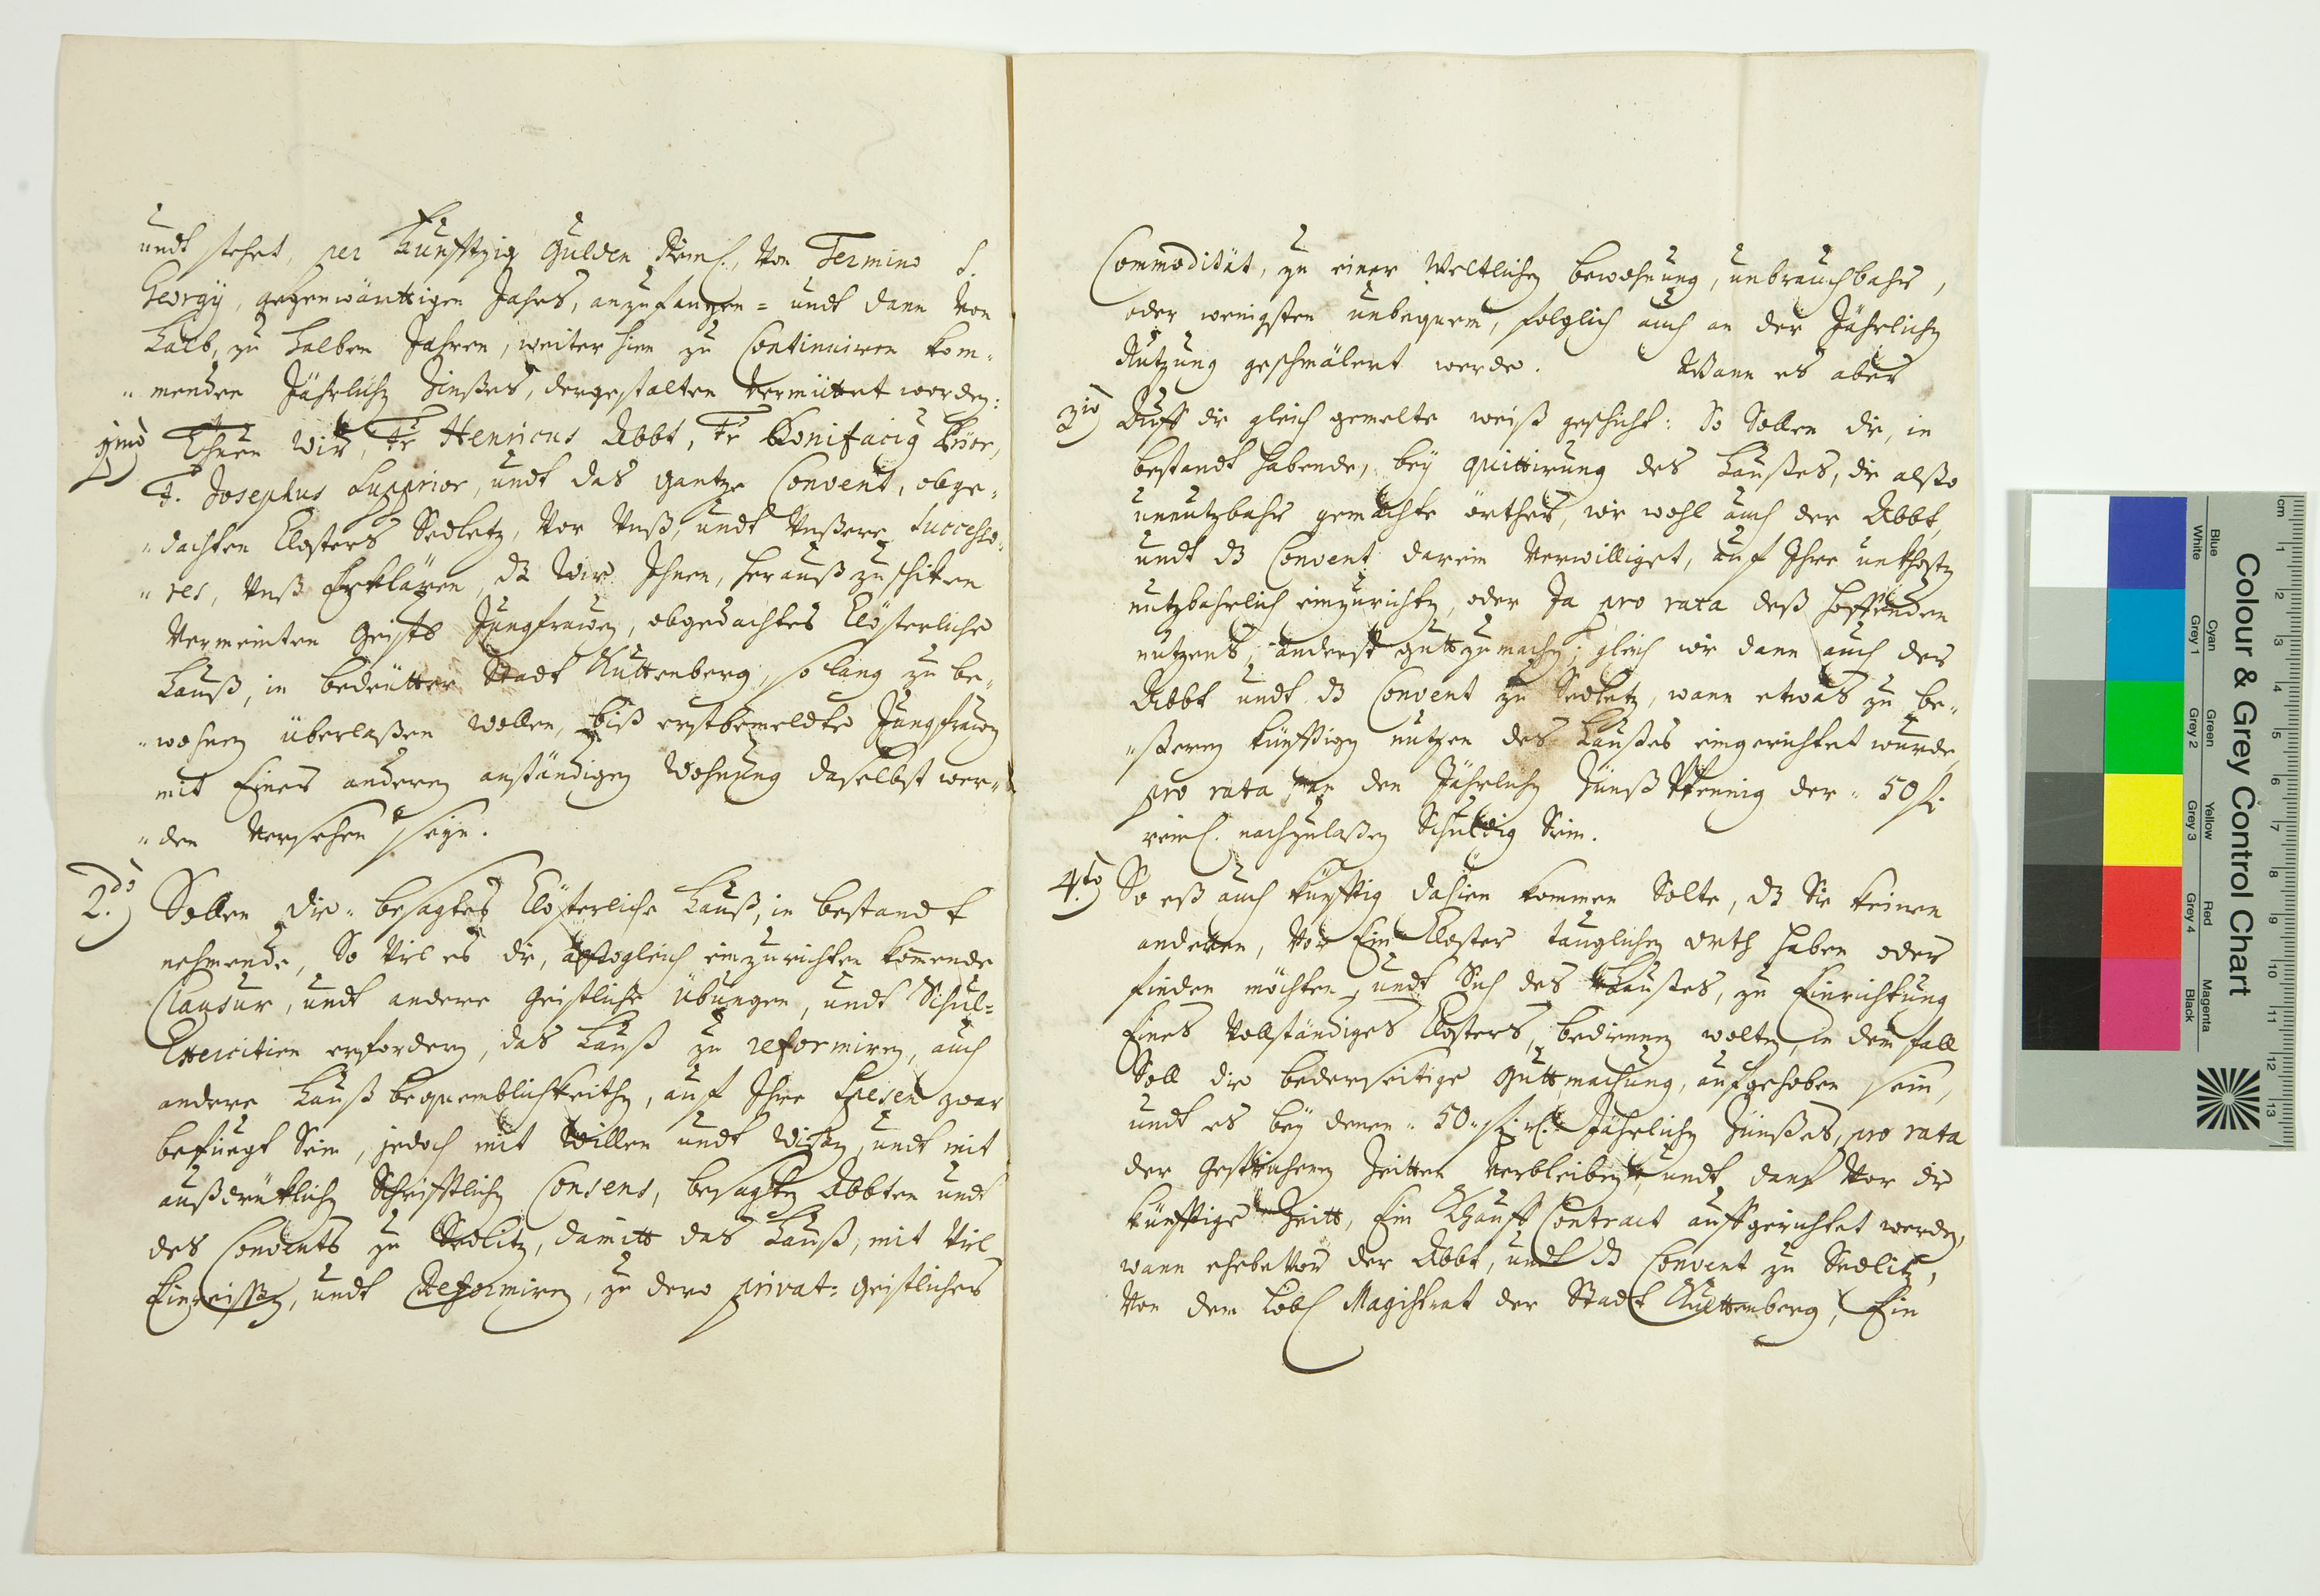 undt stehet, per Funfftzig Gulden Reinl., Von Termino S.
Georgÿ, gegenwärttigen Jahrs, anzufangen = undt dann Von
Halb, zu Halben Jahren, weiter hin zu Continuiren kom„
„menden Jährlichen Zinßes, dergestalten Vermittet worden:
1mo Thuen Wir, Fr. Henricus Abbt, Fr. Bonifacius Prior,
F. Josephus Supprior, undt das gantze Convent, obge„
„dachten Closters Sedletz, Vor Unß, undt Unßere Successo„
„res, Unß Erklären, dz Wir Ihnen, heraußzuschiken
Vermeinten Geistl. Jungfrawen, obgedachtes Clösterliche
Hauß, in bedeutter Stadt Kuttenberg, so lang zu be„
„wohnen überlaßen wollen, biß erstbemeldte Jungfrawen
mit Einer anderen anständigen Wohnung daselbst wer„
„den Versehen seyn.
2do Sollen die besagtes Clösterliche Hauß, in bestandt
nehmende, So Viel es die, alßogleich einzurichten kommende
Clausur, undt andere Geistliche übungen, undt Schul=
Exercitien erfordern, das Hauß zu reformiren, auch
andere Haußbequemblichkeithen, auf Ihre Spesen zwar
befuegt Sein, jedoch mit Willen undt Wißen, undt mit
außdrüklichen Schrifftlichen Consens, besagten Abbten undt
des Convents zu Sedlitz, damitt das Hauß, mit Viel
Einreißen, undt Reformiren, zu dero privat= Geistlicher
Commodität, zu einer Weltlichen bewohnung, unbrauchbahr,
oder wenigsten unbequem, folglich auch an der Jährlichen
Nutzung geschmälert werde. Wann es aber
3tio Auff die gleich gemelte weiß geschicht: So Sollen die, in
bestandt habende, beÿ quittirung des Haußes, die alßo
unnutzbahr gemachte örther, wie wohl auch der Abbt,
undt dz Convent darein Verwilliget, auf Ihre unkhosten
nutzbahrlich einzurichten, oder Ja pro rata deß hoffenden
nutzens, anderst guttzumachen; gleich wie dann auch der
Abbt undt dz Convent zu Sedletz, wann etwas zu be„
„ßeren künfftigen nutzen des Haußes eingerichtet wurde,
pro rata, an den Jährlichen Zünß Pfennig der „ 50 fl.
reinl. nachzulaßen Schuldig Sein.
4to So eß auch künfftig dahien kommen Solte, dz Sie keinen
anderen, Vor Ein Closter tauglichen orth haben oder
finden möchten, undt Sich des Haußes, zu Einrichtung
Eines Vollständiges Closters, bedienen wolten, in dem fall
Soll die bederseitige Guttmachung, aufgehoben sein,
undt es beÿ denen „ 50 „ fl. rl. Jährlichen Zünßes, pro rata
der Gestrichenen Zeitten Verbleiben, undt dann Vor die
künfftige Zeitt, Ein Khauff Contract auffgerichtet werden,
wann ehebevor der Abbt, undt dz Convent zu Sedlitz,
Von dem Löbl. Magistrat der Stadt Kuttenberg, Ein